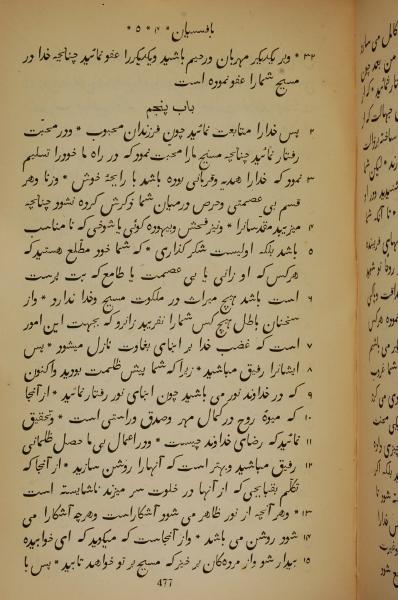 بافسسیان * ۴ * ۵ *
۳۲ * و بر یکدیگر مهربان و رحیم باشید و یکدیگر را عفو نمائید چنانچه خدا در
مسیح شما را عفو نموده است
باب پنجم
۲ پس خدا را متابعت نمائید چون فرزندان محبوب * و در محبّت
رفتار نمائید چنانچه مسیح ما را محبّت نمود که در راه ما خود را تسلیم
۳ نمود که خدا را هدیه و قربانی بوده باشد با رایحهٔ خوش * و زنا و هر
قسم بی عصمتی و حرص در میان شما ذکرش کرده نشود چنانچه
۴ میزیبد مقدّسانرا * و نیز فحش و بیهوده گوئی یا شوخی که نامناسب
۵ باشد بلکه اولیست شکر گذاری * که شما خود مطلع هستید که
هر کس که او زانی یا بی عصمت یا طامع که بت پرست
۶ است باشد هیچ میراث در ملکوت مسیح و خدا ندارد * و از
سخنان باطل هیچ کس شما را نفریبد زانرو که بجهت این امور
۷ است که غضب خدا بر ابنای بغاوت نازل میشود * پس
۸ ایشانرا رفیق مباشید * زیرا که شما پیش ظلمت بودید و اکنون
۹ که در خداوند نور می باشید چون ابنای نور رفتار نمائید * از آنجا
۱۰ که میوهٔ روح در کمال مهر و صدق و راستی است * و تحقیق
۱۱ نمائید که رضای خداوند چیست * و در اعمال بی ما حصل ظلمانی
۱۲ رفیق مباشید و بهتر است که آنها را روشن سازید * از آنجا که
تکلّم بقبایحی که از آنها در خلوت سر میزند ناشایسته است
۱۳ * و هر آنچه از نور ظاهر می شود آشکار است و هر چه آشکارا می
۱۴ شود روشن می باشد * و از آنجاست که میگوید که ای خوابیده
۱۵ بیدار شو و از مردکان بر خیز که مسیح بر تو خواهد تابید * پس با
477